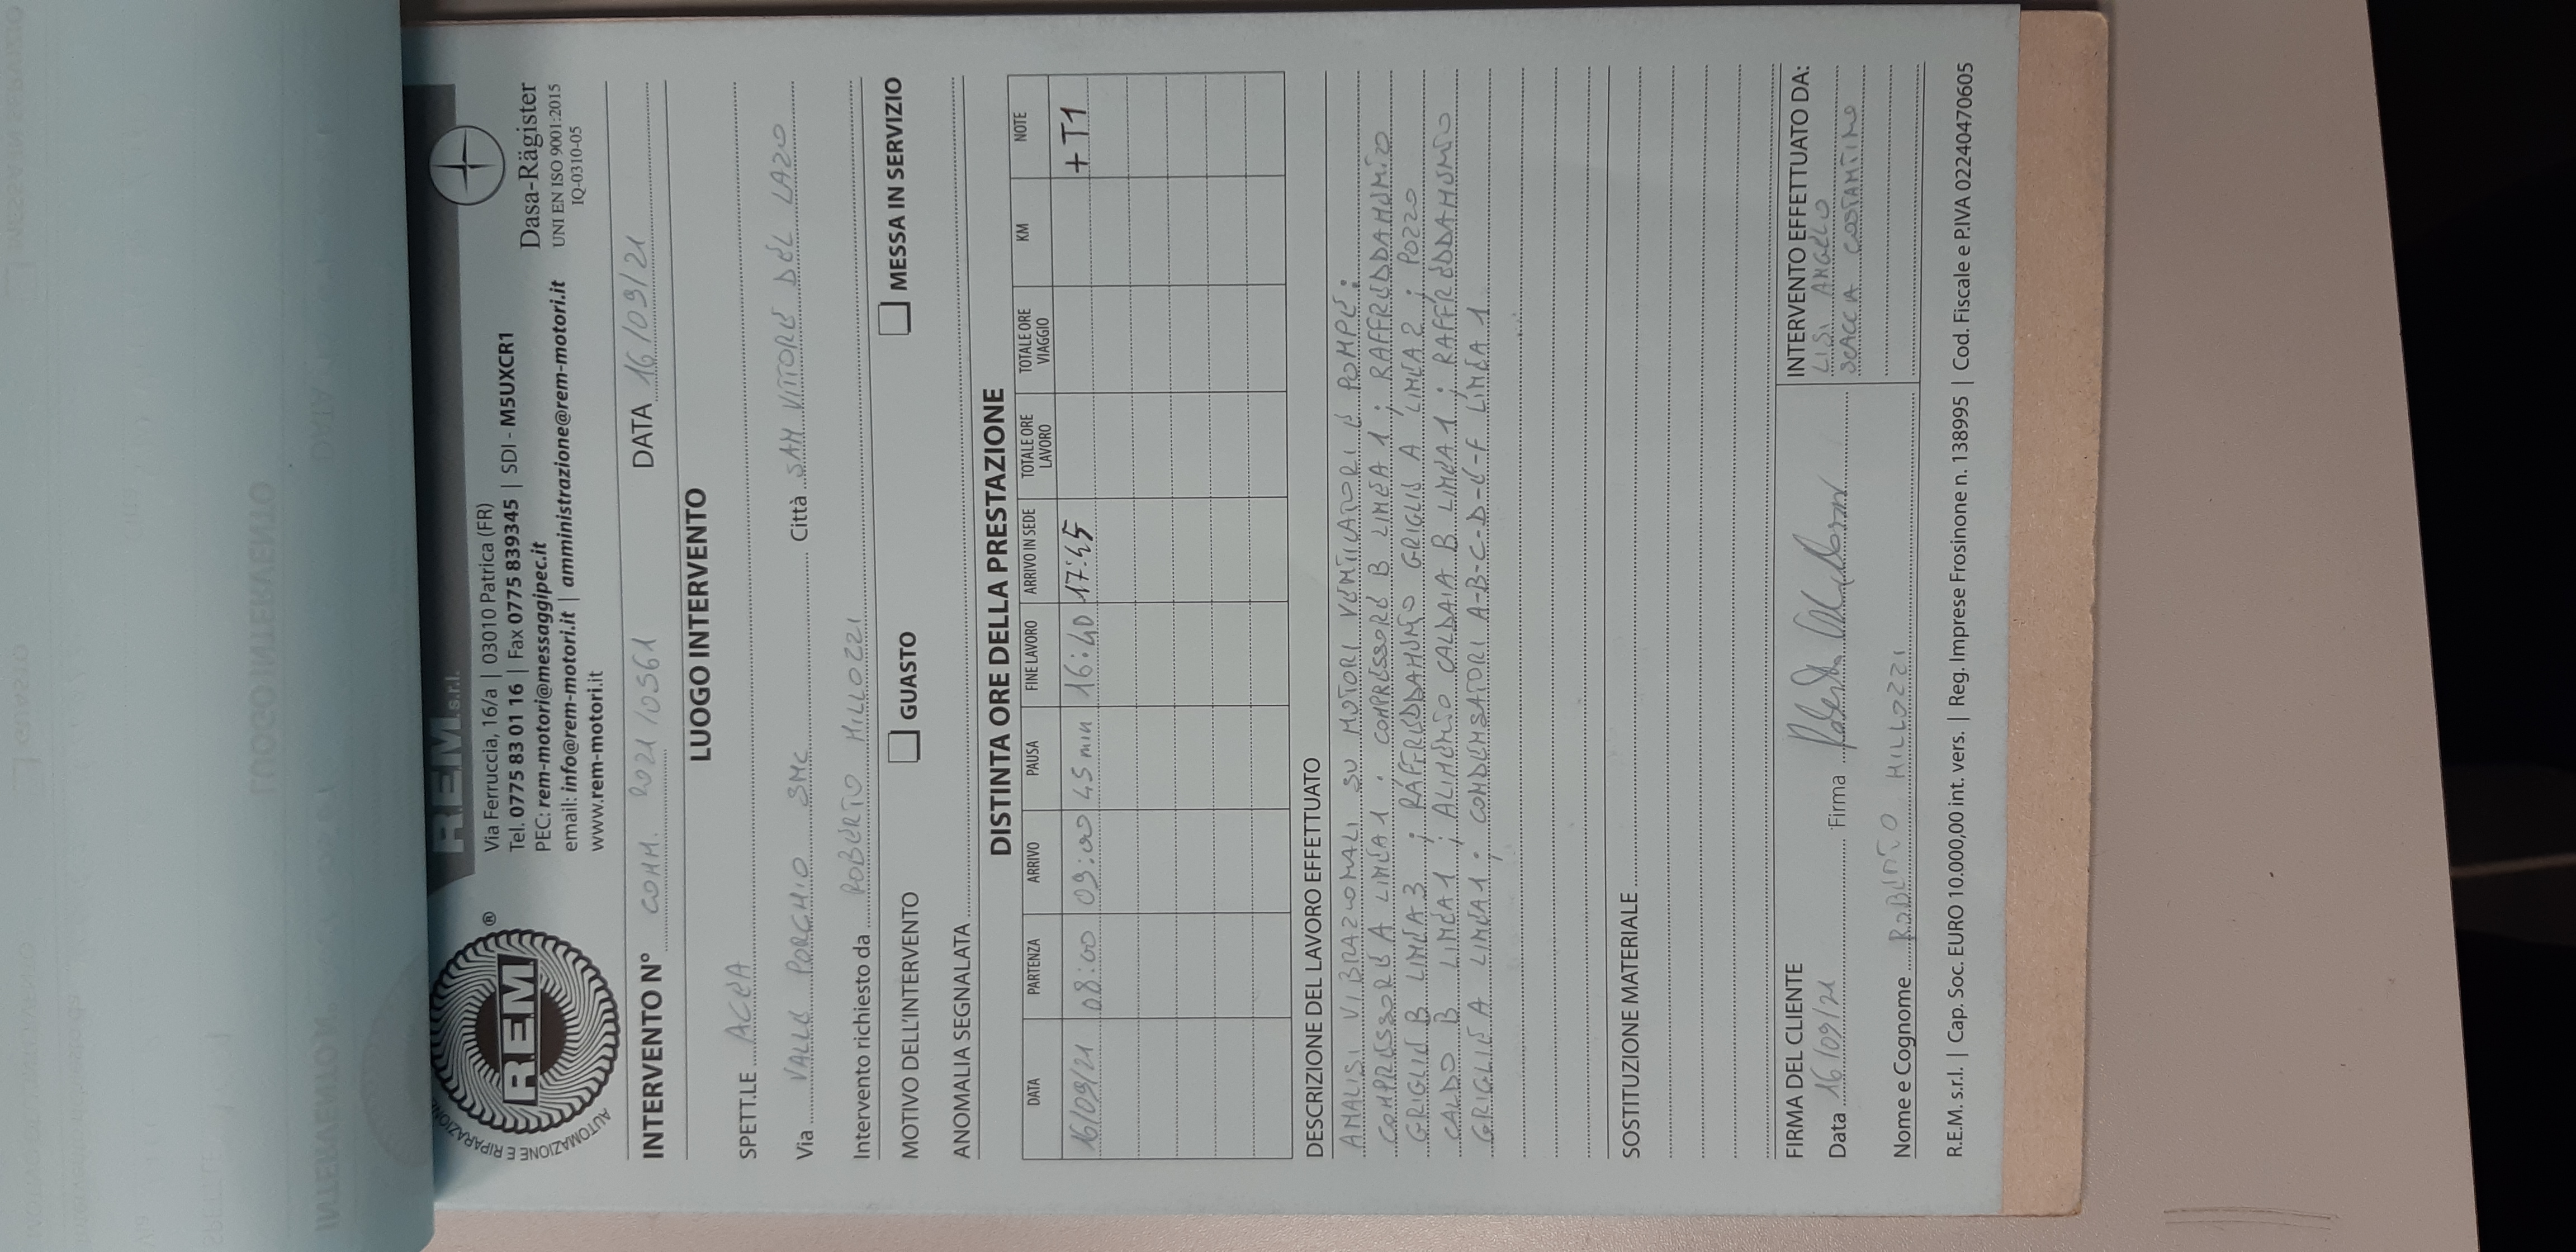 REM
AUTOMAZIONE E RIPARAZIONE
®
REM s.r.l.
Via Ferruccia, 16/a | 03010 Patrica (FR)
Tel. 0775 83 01 16 | Fax 0775 839345 | SDI - M5UXCR1
PEC: rem-motori@messaggipec.it
email: info@rem-motori.it | amministrazione@rem-motori.it
www.rem-motori.it
Dasa-Rägister
UNI EN ISO 9001:2015
IQ-0310-05
INTERVENTO N° COMM. 2021/0561 DATA 16/09/21
LUOGO INTERVENTO
SPETT.LE ACEA
Via VALLE PORCHIO SNC Città SAN VITTORE DEL LAZIO
Intervento richiesto da ROBERTO MILLOZZI
MOTIVO DELL'INTERVENTO GUASTO MESSA IN SERVIZIO
ANOMALIA SEGNALATA
DISTINTA ORE DELLA PRESTAZIONE
DATA PARTENZA ARRIVO PAUSA FINE LAVORO ARRIVO IN SEDE TOTALE ORE LAVORO TOTALE ORE VIAGGIO KM NOTE
16/09/21 08:00 09:00 45 min 16:40 17:45 +T1
DESCRIZIONE DEL LAVORO EFFETTUATO
ANALISI VIBRAZIONALI SU MOTORI VENTILATORI E POMPE:
COMPRESSORE A LINEA 1; COMPRESSORE B LINEA 1; RAFFREDDAMENTO
GRIGLIE B LINEA 3; RAFFREDDAMENTO GRIGLIE A LINEA 2; POZZO
CALDO B LINEA 1; ALIMENTO CALDAIA B LINEA 1; RAFFREDDAMENTO
GRIGLIE A LINEA 1; CONDENSATORI A-B-C-D-E-F LINEA 1
SOSTITUZIONE MATERIALE
FIRMA DEL CLIENTE
Data 16/09/21 Firma
Nome e Cognome ROBERTO MILLOZZI
INTERVENTO EFFETTUATO DA:
LISI ANGELO
SCACCIA COSTANTINO
R.E.M. s.r.l. | Cap. Soc. EURO 10.000,00 int. vers. | Reg. Imprese Frosinone n. 138995 | Cod. Fiscale e P.IVA 02240470605